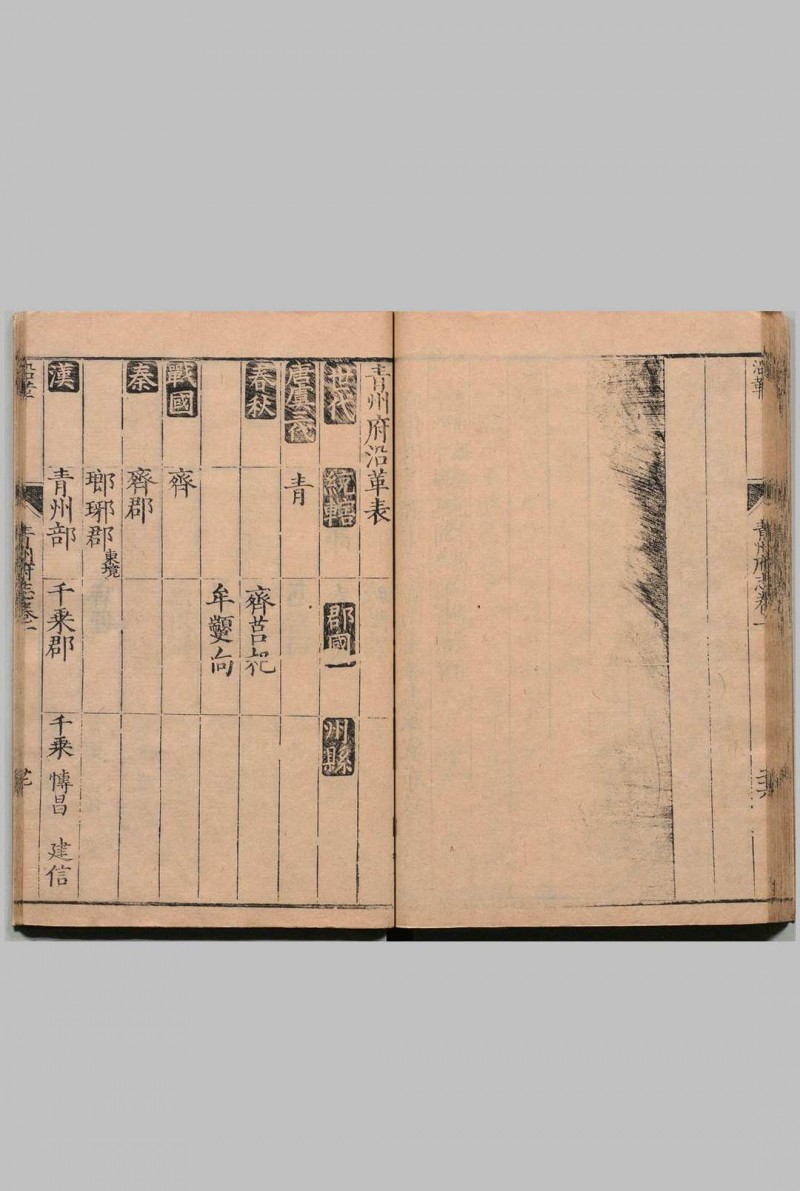 沿革
青州府志卷一
青州府沿革表
世代 統轄 郡國 州縣
唐虞三代 青
春秋 齊莒杞
牟 向
戰國 齊
秦 齊郡
瑯琊郡東境
漢 青州部 千乘郡 千乘 博昌 建信
沿革
青州府志卷一